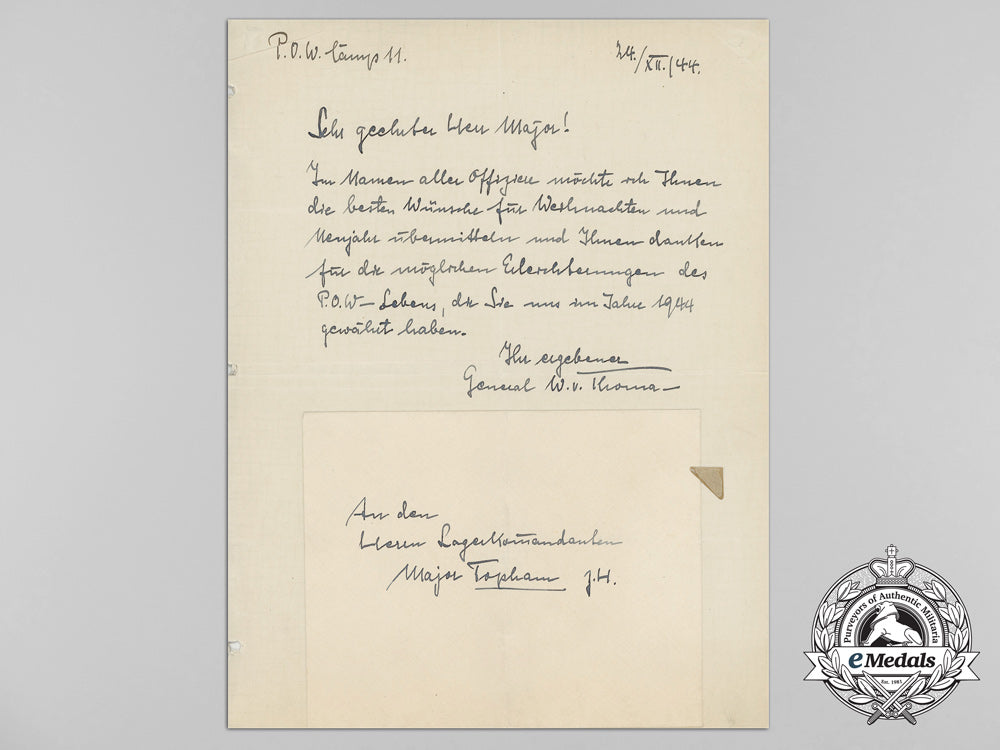 P.O.W. Camp 11.
24./XII./44.
Sehr geehrter Herr Major!
Im Namen aller Offiziere möchte ich Ihnen
die besten Wünsche für Weihnachten und
Neujahr übermitteln und Ihnen danken
für die möglichen Erleichterungen des
P.O.W-Lebens, die Sie uns im Jahre 1944
gewährt haben.
Ihr ergebener
General W. v. Thoma
An den
Herrn Lagerkom̄andanten
Major Topham
Purveyors of Authentic Militaria
eMedals
Est. 1981